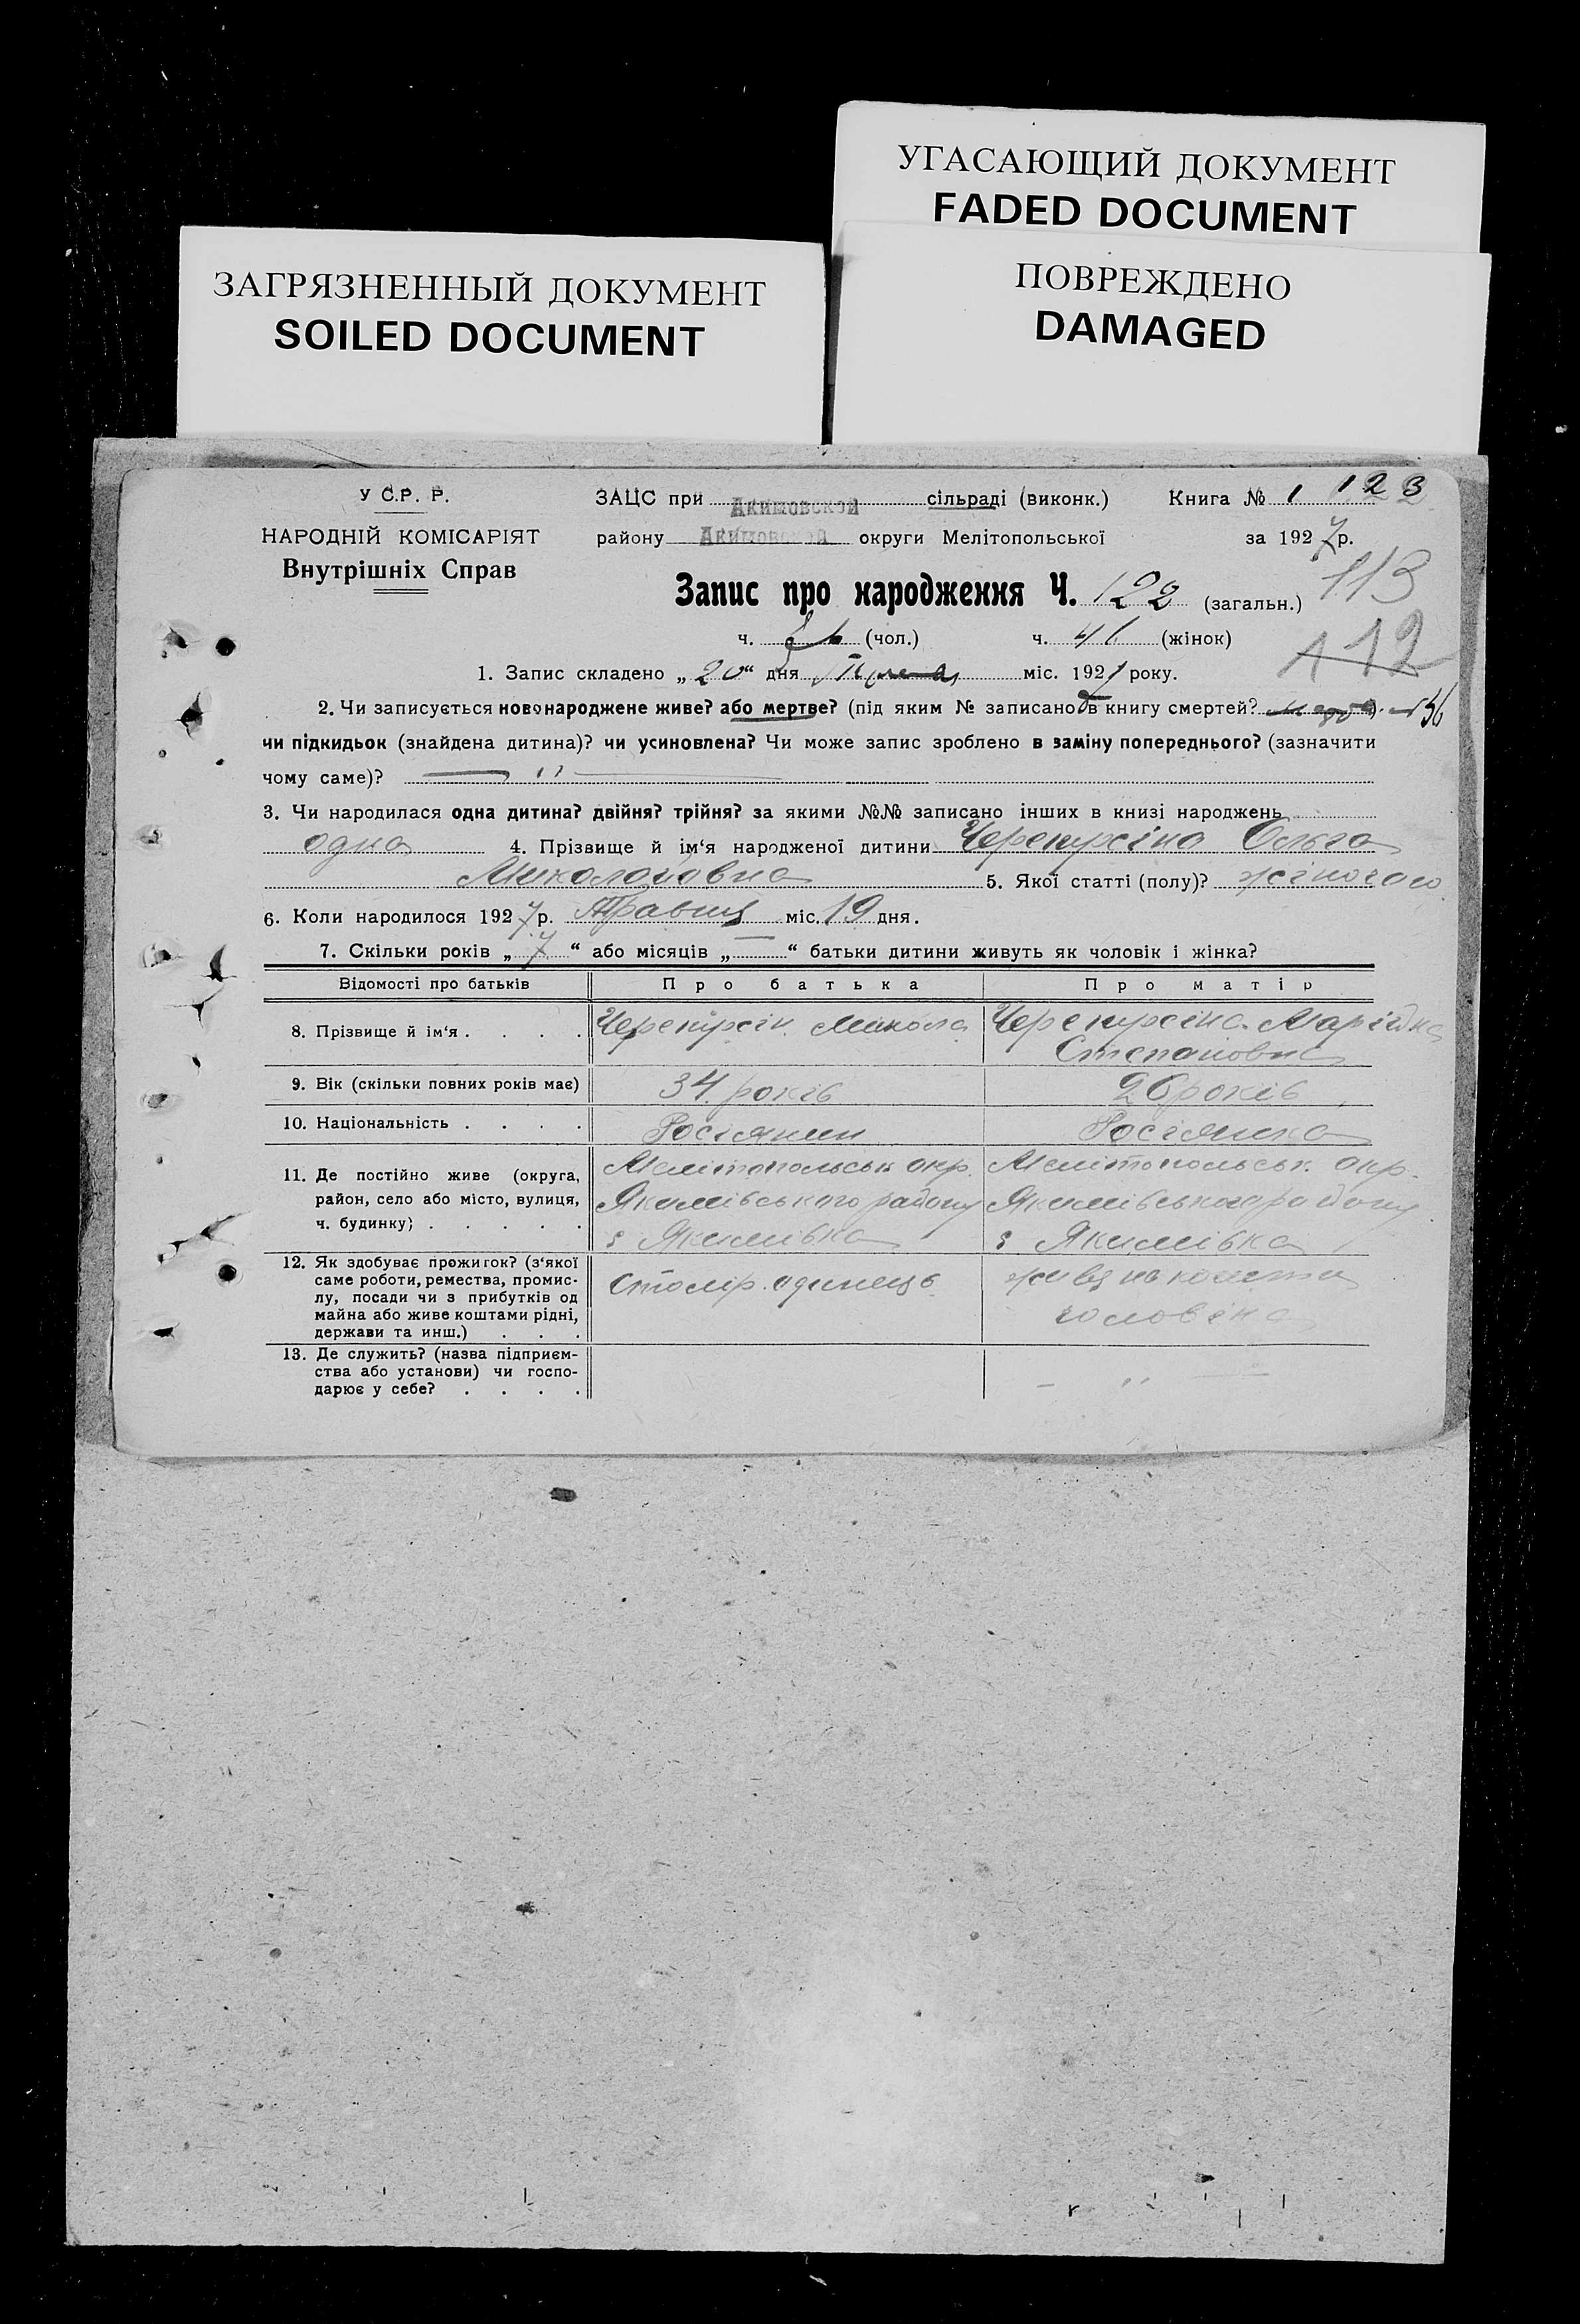 УГАСАЮЩИЙ ДОКУМЕНТ
FADED DOCUMENT
ЗАГРЯЗНЕННЫЙ ДОКУМЕНТ
SOILED DOCUMENT
ПОВРЕЖДЕНО
DAMAGED
У С.Р. Р.
НАРОДНІЙ КОМІСАРІЯТ
Внутрішніх Справ
ЗАЦС при Акимовской сільраді (виконк.) Книга № 1 123
району Акимовской округи Мелітопольської за 1927 р.
Запис про народження Ч. 122 (загальн.) 113
ч. (чол.) ч. 41 (жінок) 112
1. Запис складено „ 20 “ дня міс. 1927 року.
2. Чи записується новонароджене живе? або мертве? (під яким № записано в книгу смертей?
чи підкидьок (знайдена дитина)? чи усиновлена? Чи може запис зроблено в заміну попереднього? (зазначити
чому саме)? — " —
3. Чи народилася одна дитина? двійня? трійня? за якими №№ записано інших в книзі народжень
одна 4. Прізвище й ім‘я народженої дитини Черепурсіна Ольга
Миколаювна 5. Якої статті (полу)? жіночого
6. Коли народилося 1927 р. Травня міс. 19 дня.
7. Скільки років „ 7 “ або місяців „ — “ батьки дитини живуть як чоловік і жінка?
Відомості про батьків Про батька Про матір
8. Прізвище й ім‘я . . . . Черепурсін Микола Черепурсіна Марія
Степановна
9. Вік (скільки повних років має) 34 років 26 років
10. Національність . . . . Росіянин Росіянка
11. Де постійно живе (округа, Мелітопольськ окр. Мелітопольськ. окр.
район, село або місто, вулиця, Якимівського району Якимівського району
ч. будинку) . . . . . с Якимівка с Якимівка
12. Як здобуває прожиток? (з‘якої
саме роботи, ремества, промис-
лу, посади чи з прибутків од
майна або живе коштами рідні,
держави та инш.) . . .
столяр. одинець
живе на кошти
чоловіка
13. Де служить? (назва підприєм-
ства або установи) чи госпо-
дарює у себе? . . . . — " —